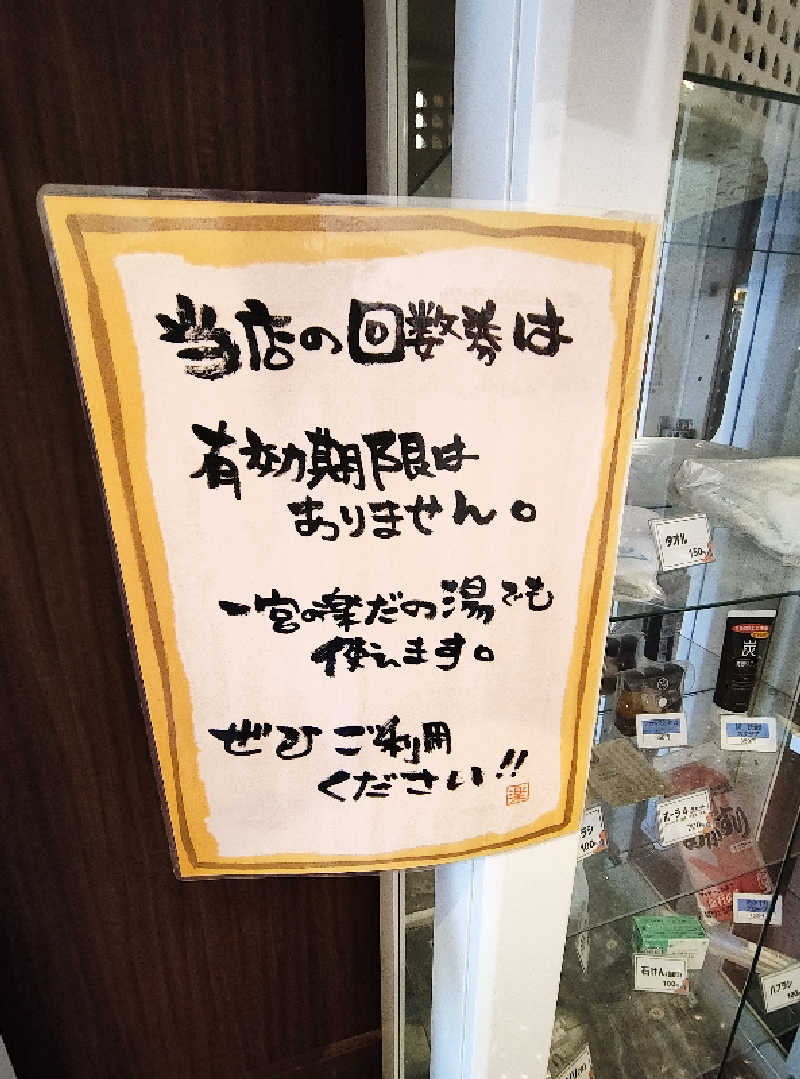 当店の回数券は
有効期限は
ありません。
一宮の楽だの湯でも
使えます。
ぜひご利用
ください!!
楽
タオル
150
炭
石けん
100
ハブラシ